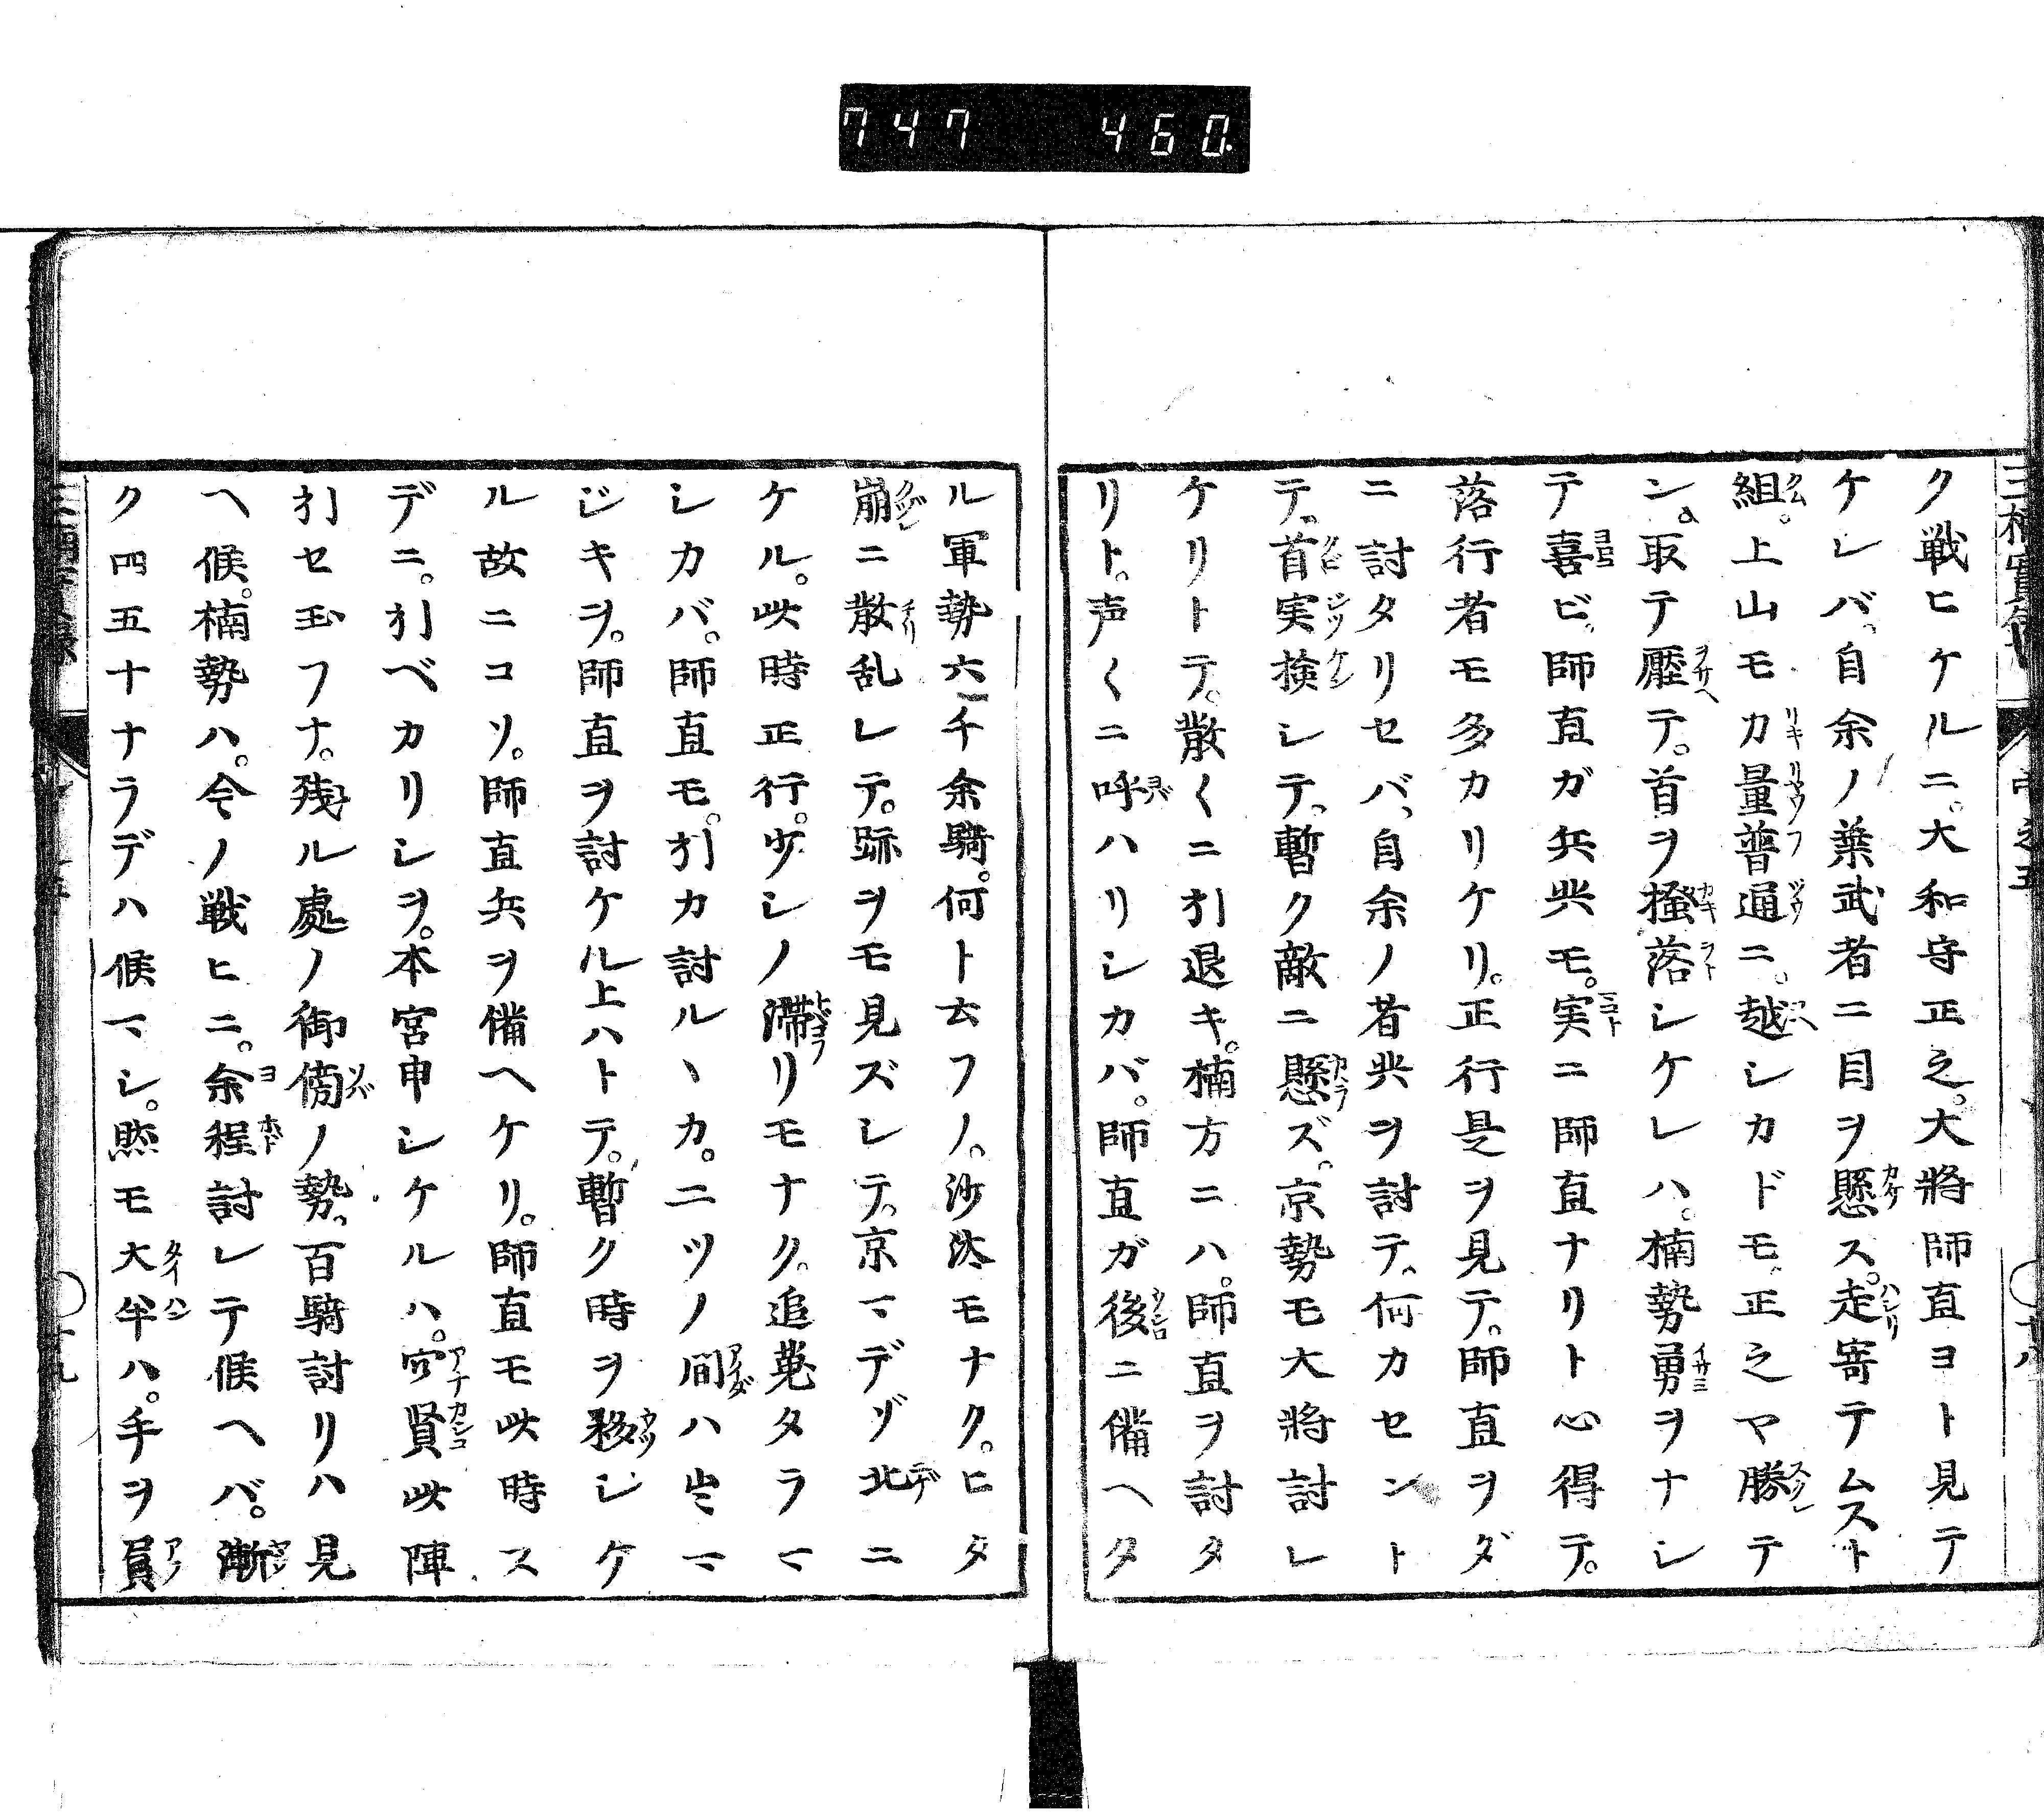 747 460
ク戦ヒケルニ。大和守正之。大将師直ヨト見テ
ケレバ。自余ノ葉武者ニ目ヲ懸ス。走寄テムスト
組。上山モ力量普通ニ。越シカドモ。正之マ勝テ
ン。取テ壓テ。首ヲ搔落シケレハ。楠勢勇ヲナシ
テ喜ビ。師直ガ兵共モ。実ニ師直ナリト心得テ。
落行者モ多カリケリ。正行是ヲ見テ。師直ヲダ
ニ討タリセバ、自余ノ者共ヲ討テ、何カセント
テ、首実検シテ、暫ク敵ニ懸ラズ。京勢モ大将討レ
ケリトテ。散〱ニ引退キ。楠方ニハ。師直ヲ討タ
リト。声〱ニ呼ハリシカバ。師直ガ後ニ備ヘタ
ル軍勢六千余騎。何ト云フノ。沙汰モナク。ヒタ
崩ニ散乱レテ。跡ヲモ見ズシテ。京マデゾ北ニ
ケル。此時正行。少シノ滞リモナク。追蒐タラマ
シカバ。師直モ。引カ討ルヽカ。二ツノ間ハ出マ
ジキヲ。師直ヲ討ケル上ハトテ。暫ク時ヲ移シケ
ル故ニコソ。師直兵ヲ備ヘケリ。師直モ此時ス
デニ。引ベカリシヲ。本宮申シケルハ。穴賢此陣
引セ玉フナ。残ル處ノ御傍ノ勢。百騎討リハ見
ヘ候。楠勢ハ。今ノ戦ヒニ。余程討レテ候ヘバ。漸
ク四五十ナラデハ候マシ。然モ大半ハ。手ヲ負